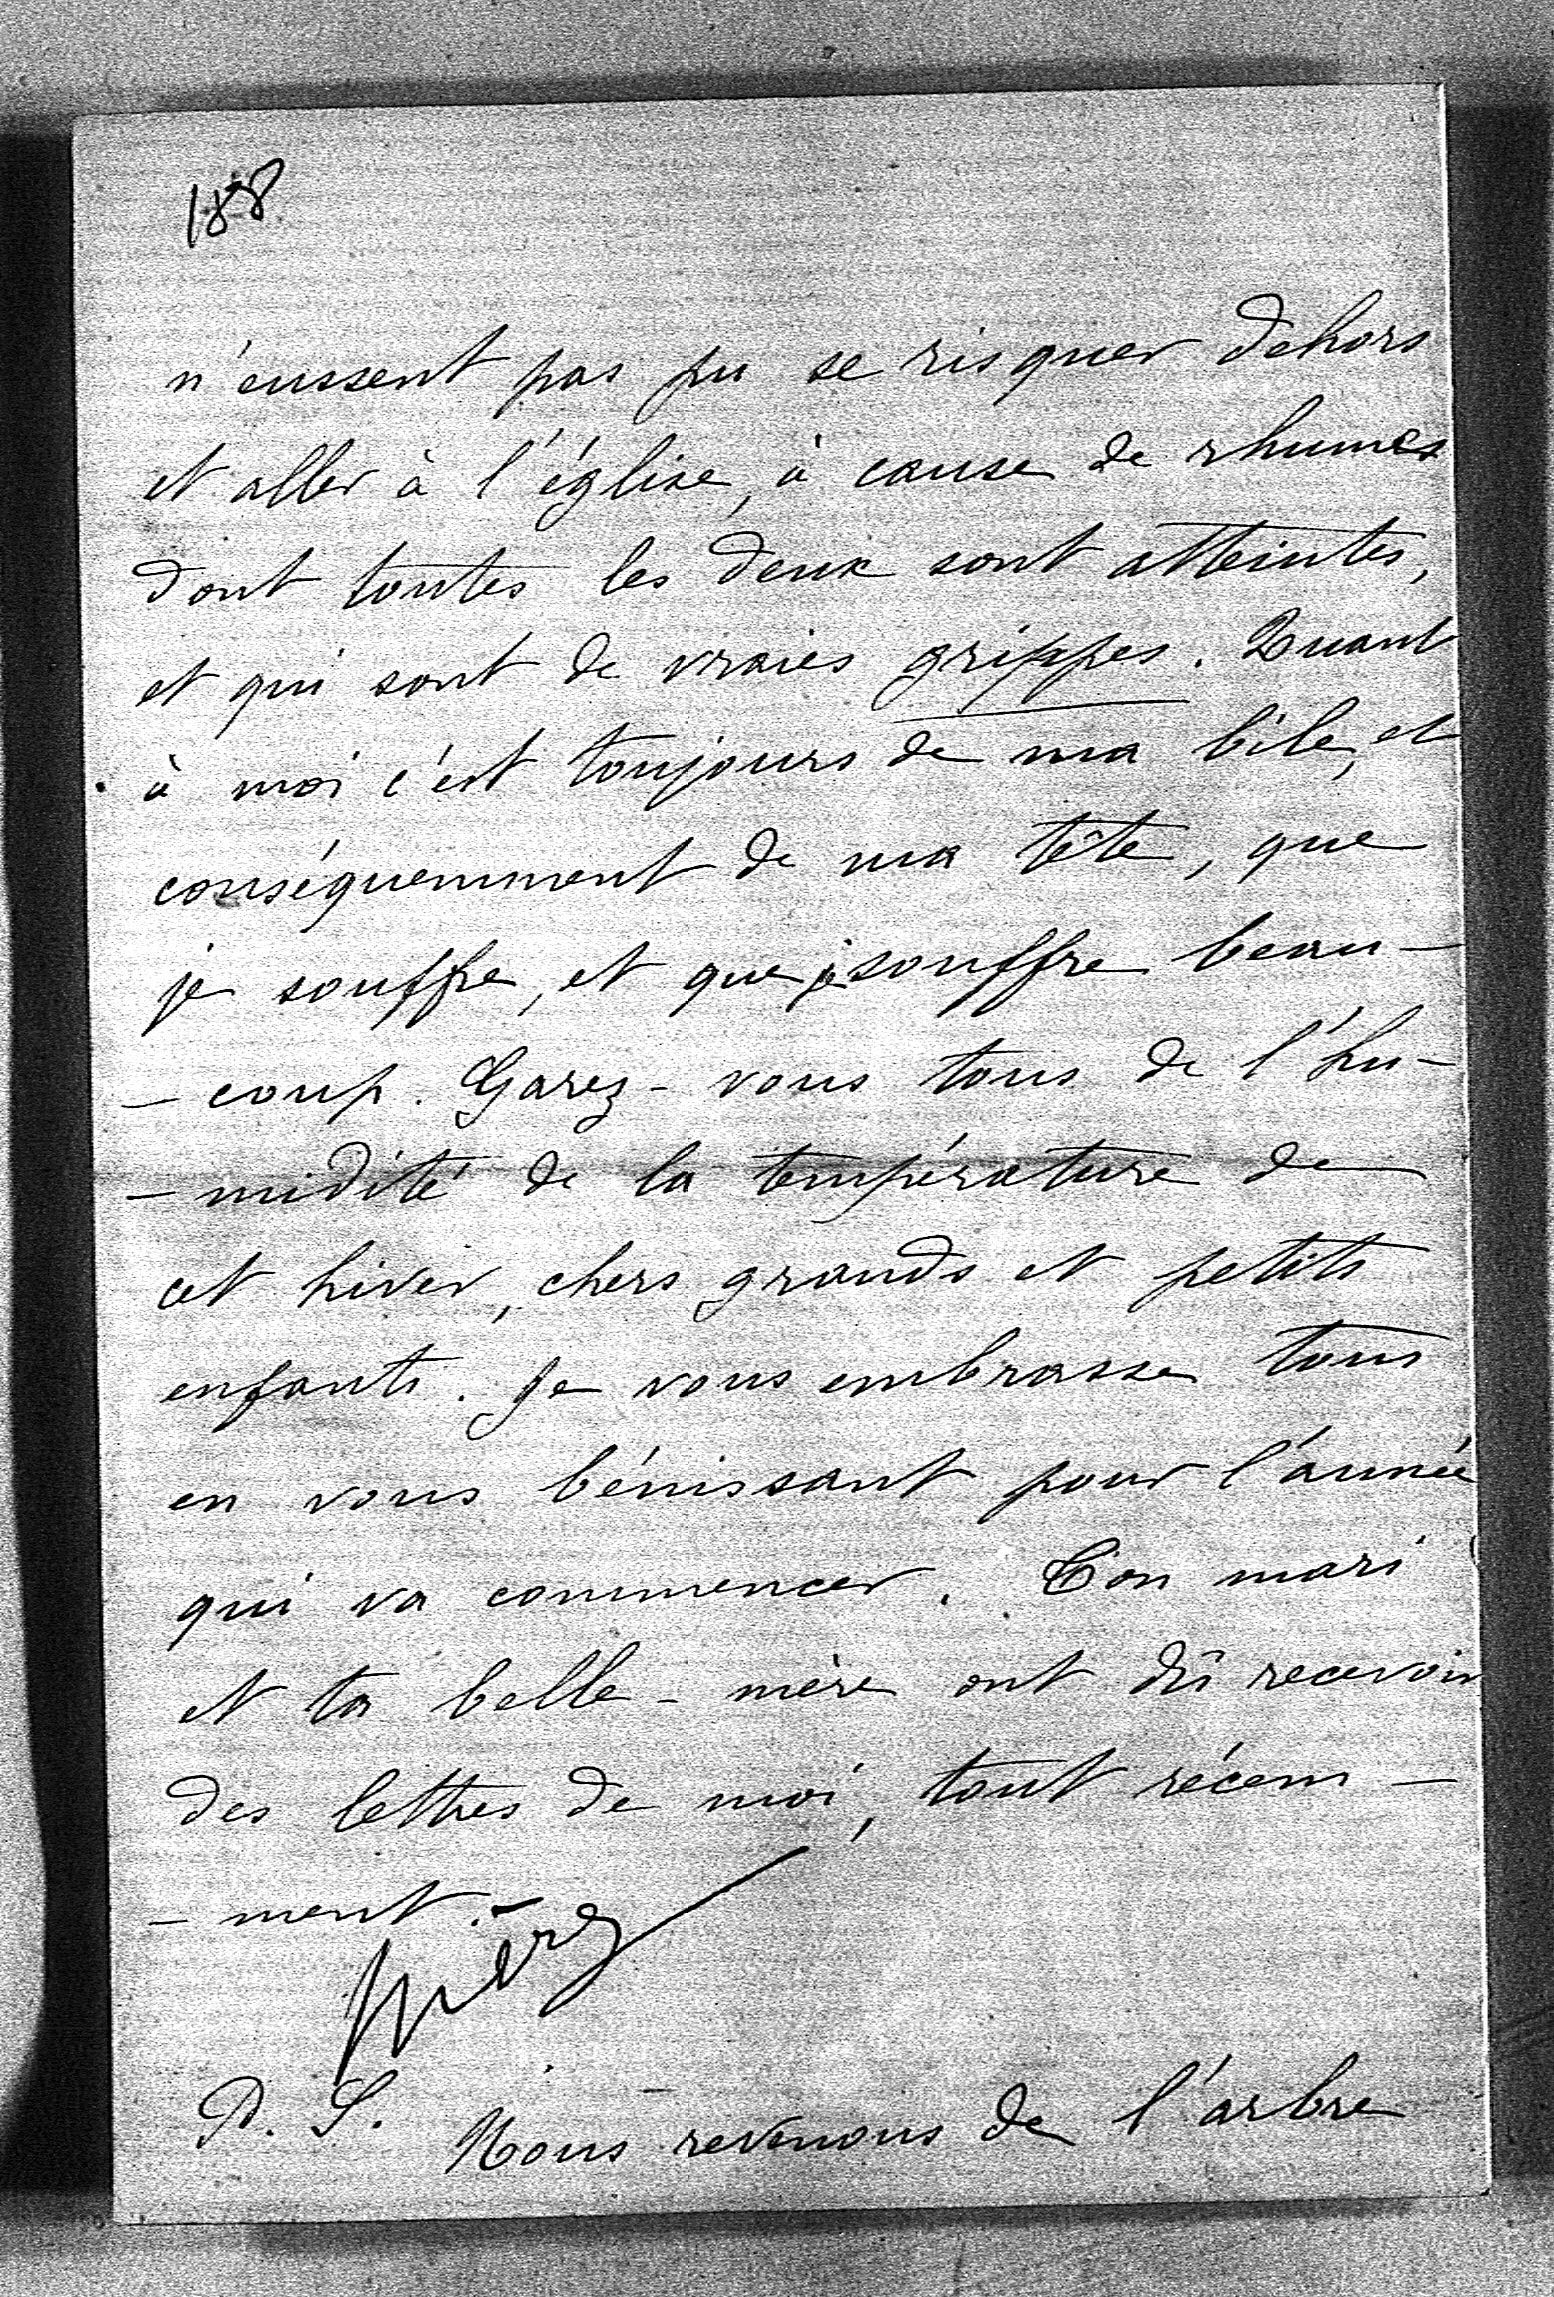 188
n'eussent pas pu se risquer dehors
et aller à l'église, à cause de rhumes
dont toutes les deux sont atteintes,
et qui sont de vraies grippes. Quant
à moi c'est toujours de ma bile, et
conséquemment de ma tête, que
je souffre, et que je souffre beau-
- coup. Garez-vous tous de l'hu-
- midité de la température de
cet hiver, chers grands et petits
enfants. Je vous embrasse tous
en vous bénissant pour l'année
qui va commencer. Ton mari
et ta belle-mère ont dû recevoir
des lettres de moi, tout récem-
- ment.
P. S. Nous revenons de l'arbre